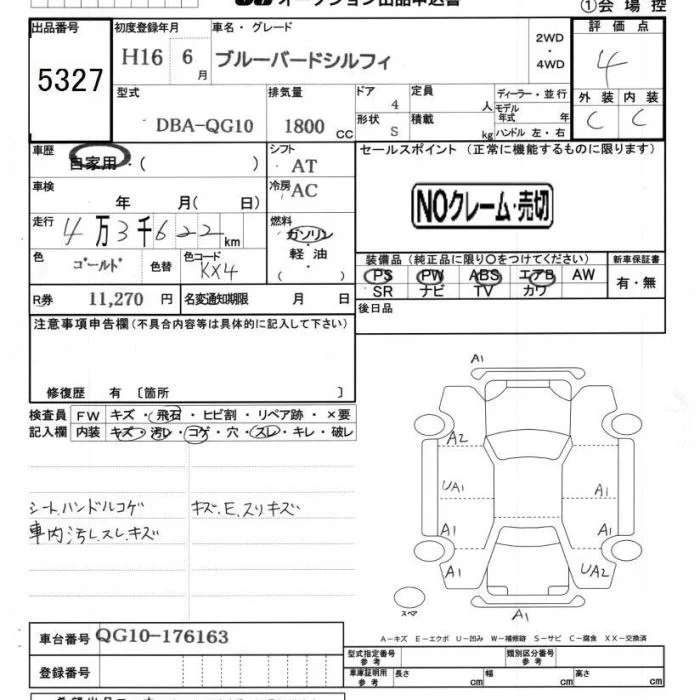 オークション出品申込書
①会場控
出品番号
5327
初度登録年月
H16 6月
車名・グレード
ブルーバードシルフィ
2WD
・
4WD
評価点
4
型式
DBA-QG10
排気量
1800 cc
ドア
4
定員
人
ディーラー・並行
モデル年式 年
形状
S
積載
kg
ハンドル 左・右
外装
C
内装
C
車歴
自家用・( )
シフト
AT
セールスポイント (正常に機能するものに限ります)
NOクレーム・売切
車検
年 月( 日)
冷房
AC
走行
4万3千622km
燃料
ガソリン
・
軽油
・
( )
色
ゴールド
色替
色コード
KX4
装備品(純正品に限り○をつけてください)
PS PW ABS エアB AW
SR ナビ TV カワ
新車保証書
有・無
R券
11,270 円
名変通知期限 月 日
後日品
注意事項申告欄(不具合内容等は具体的に記入して下さい)
修復歴 有〔箇所 〕
検査員
記入欄
FW キズ・飛石・ヒビ割・リペア跡・×要
内装 キズ・汚レ・コゲ・穴・スレ・キレ・破レ
シート.ハンドルコゲ
車内汚し.スレ.キズ
キズ.E.スリキズ
A1
A2
UA1
A1
A1
A1
A1
UA2
A1
スペア
A-キズ E-エクボ U-凹み W-補修跡 S-サビ C-腐食 XX-交換済
車台番号
QG10-176163
登録番号
型式指定番号
参考
類別区分番号
参考
車庫証明用
参考
長さ cm
幅 cm
高さ cm